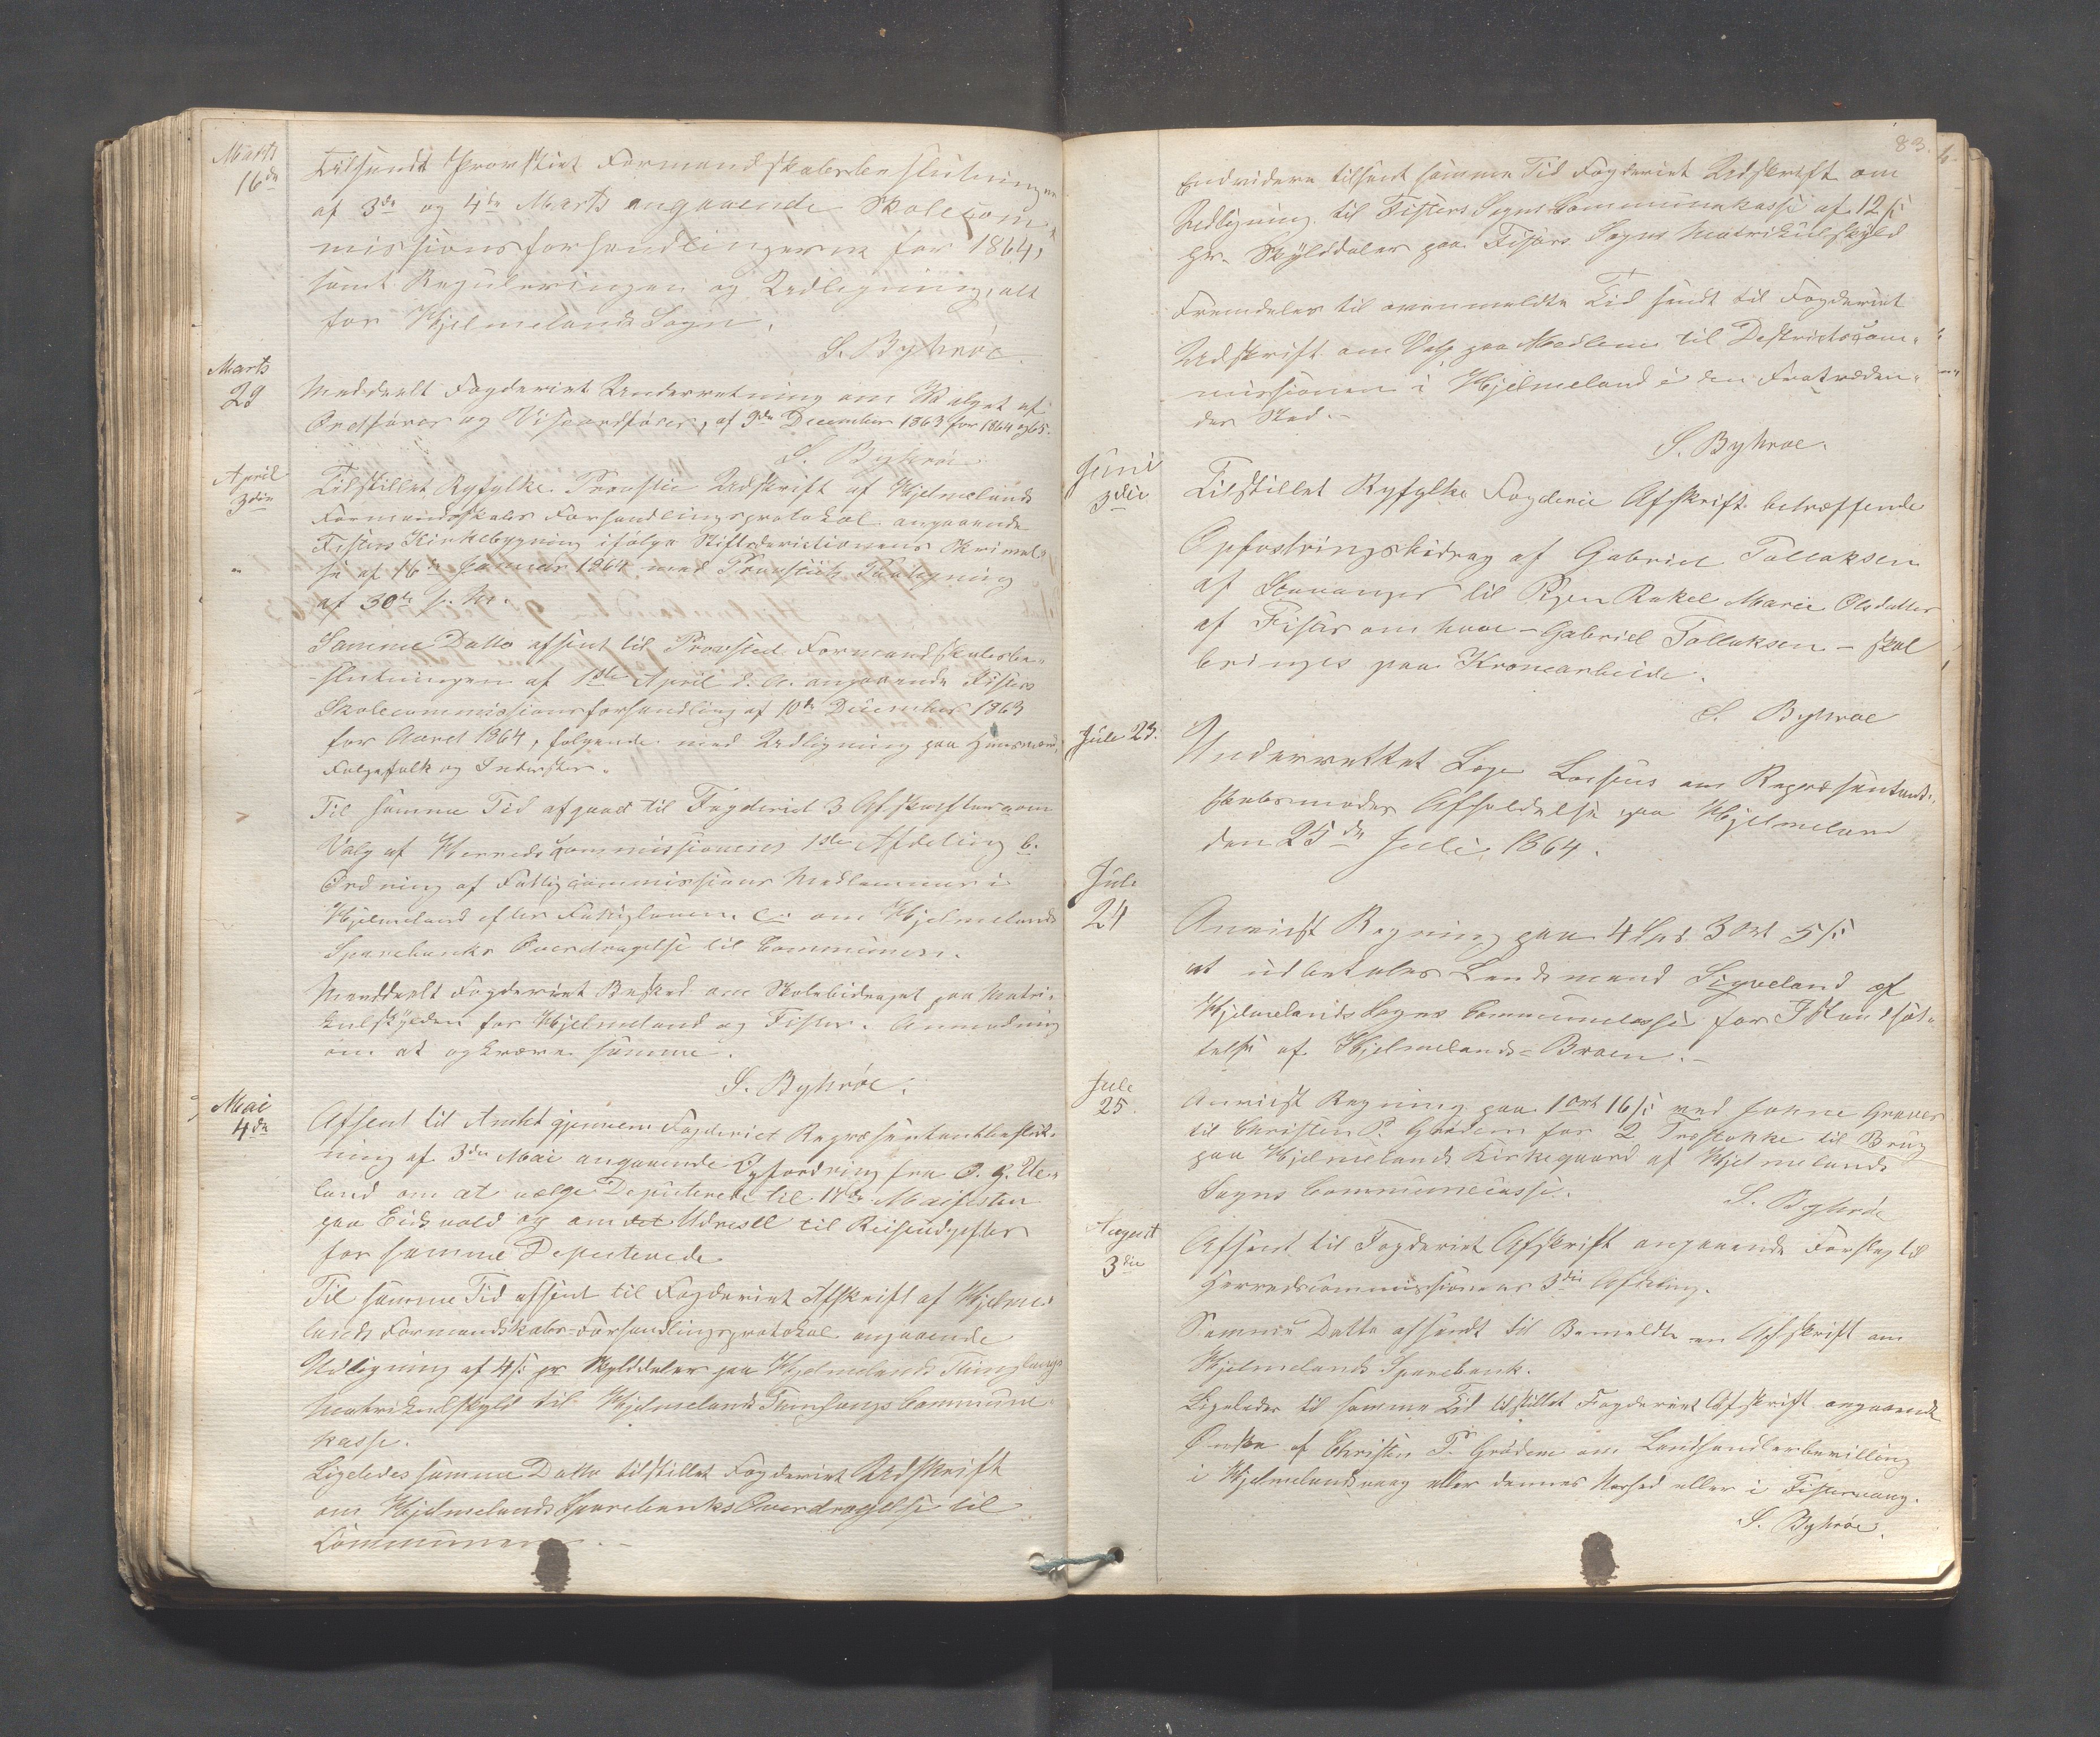 Marts
16de
Tilsendt Provstiet Formandskabsbeslutningen
af 3de og 4de Marts angaaende Skolecom-
missionsforhandlingerne for 1864,
samt Reguleringen og Udligning, alt
for Hjelmelands Sogn.
S. Byhröe
Marts
29
Meddeelt Fogderiet Underretning om Valget af
Ordfører og Viseordfører, af 9de December 1863 for 1864 og 65.
S. Byhröe
April
3die
Tilstillet Ryfylke Provstie Udskrift af Hjelmelands
Formandskabs Forhandlingsprotokol angaaende
Fisters Kirkebygning ifølge Stiftsderictionens Skrivel-
se af 16de Januar 1864 med Provstiets Paategning
af 30te s. M.
Samme Datto afsent til Provstiet Formandskabsbe-
slutningen af 1ste April d. A. angaaende Fisters
Skolecommissionsforhandling af 10de December 1863
for Aaret 1864, følgende med Udligning paa Huusmænd,
Folgefolk og Inderster.
Til samme Tid afgaaet til Fogderiet 3 Afskrifter om
Valg af Herredscommissionens 1ste Afdeling b.
Ordning af Fattigcommissions Medlemmer i
Hjelmeland efter Fattigloven. c. om Hjelmelands
Sparebanks Overdragelse til Communen.
Meddeelt Fogderiet Besked om Skolebidraget paa Matri-
kulskylden for Hjelmeland og Fister. Anmodning
om at opkræve samme.
S. Byhröe.
Mai
4de
Afsent til Amtet gjennem Fogderiet Repræsentantbeslut-
ning af 3die Mai angaaende Opfordring fra O. G. Ue-
land om at vælge Deputerede til 17de Maifesten
paa Eidsvold og om det Udreell til Reiseudgifter
for samme Deputerede
Til samme Tid afsent til Fogderiet Afskrift af Hjelme-
lands Formandskabs-Forhandlingsprotokol angaaende
Udligning af 4 ß pr Skylddaler paa Hjelmelands Thinglaugs
Matrikulskyld til Hjelmelands Thinglaugs Commune-
kasse.
Ligeledes samme Datto tilstillet Fogderiet Udskrift
om Hjelmelands Sparebanks Overdragelse til
Communen.
83.
Endvidere tilsent samme Tid Fogderiet Udskrift om
Udligning til Fisters Sogns Communekasse af 12 ß
pr. Skylddaler paa Fisters Sogns Matrikulskyld
Fremdeles til ovenmeldte Tid sendt til Fogderiet
Udskrift om Valg paa Medlem til Destrictscom-
missionen i Hjelmeland i den Fratræden-
des Sted.
S. Byhröe.
Juni
3die
Tilstillet Ryfylke Fogderie Afskrift betræffende
Opfostringsbidrag af Gabriel Tollaksen
af Stavanger til Pigen Rakel Marie Olsdatter
af Fister om hvor - Gabriel Tollaksen - skal
bringes paa Kronearbeide.
S. Byhröe
Juli 23.
Underrettet Læge om Repræsentant-
skabsmødes Afholdelse paa Hjelmeland
den 25de Juli 1864.
Juli
24
Anvist Regning paa 4 Spd. 3 Ort 5 ß
at udbetales Lendsmand Sigveland af
Hjelmelands Sogns Communecasse for Istandsæt-
telse af Hjelmelands-Broen.
Juli
25.
Anvist Regning paa 1 Ort 16 ß ved Johne Graver
til Christen P. Grødem for 2 Træstokke til Brug
paa Hjelmelands Kirkegaard af Hjelmelands
Sogns Communecasse.
S. Byhröe
August
3die
Afsent til Fogderiet Afskrift angaaende Forslag til
Herredscommissionens 3die Afdeling.
Samme Datto afsendt til Bemeldte en Afskrift om
Hjelmelands Sparebank.
Ligeledes til samme Tid tilstillet Fogderiet Afskrift angaaende
Ønske af Christen P. Grødem om Landhandlerbevilling
i Hjelmelandsvaag eller dennes Nærhed eller i Fistervaag.
S. Byhröe.